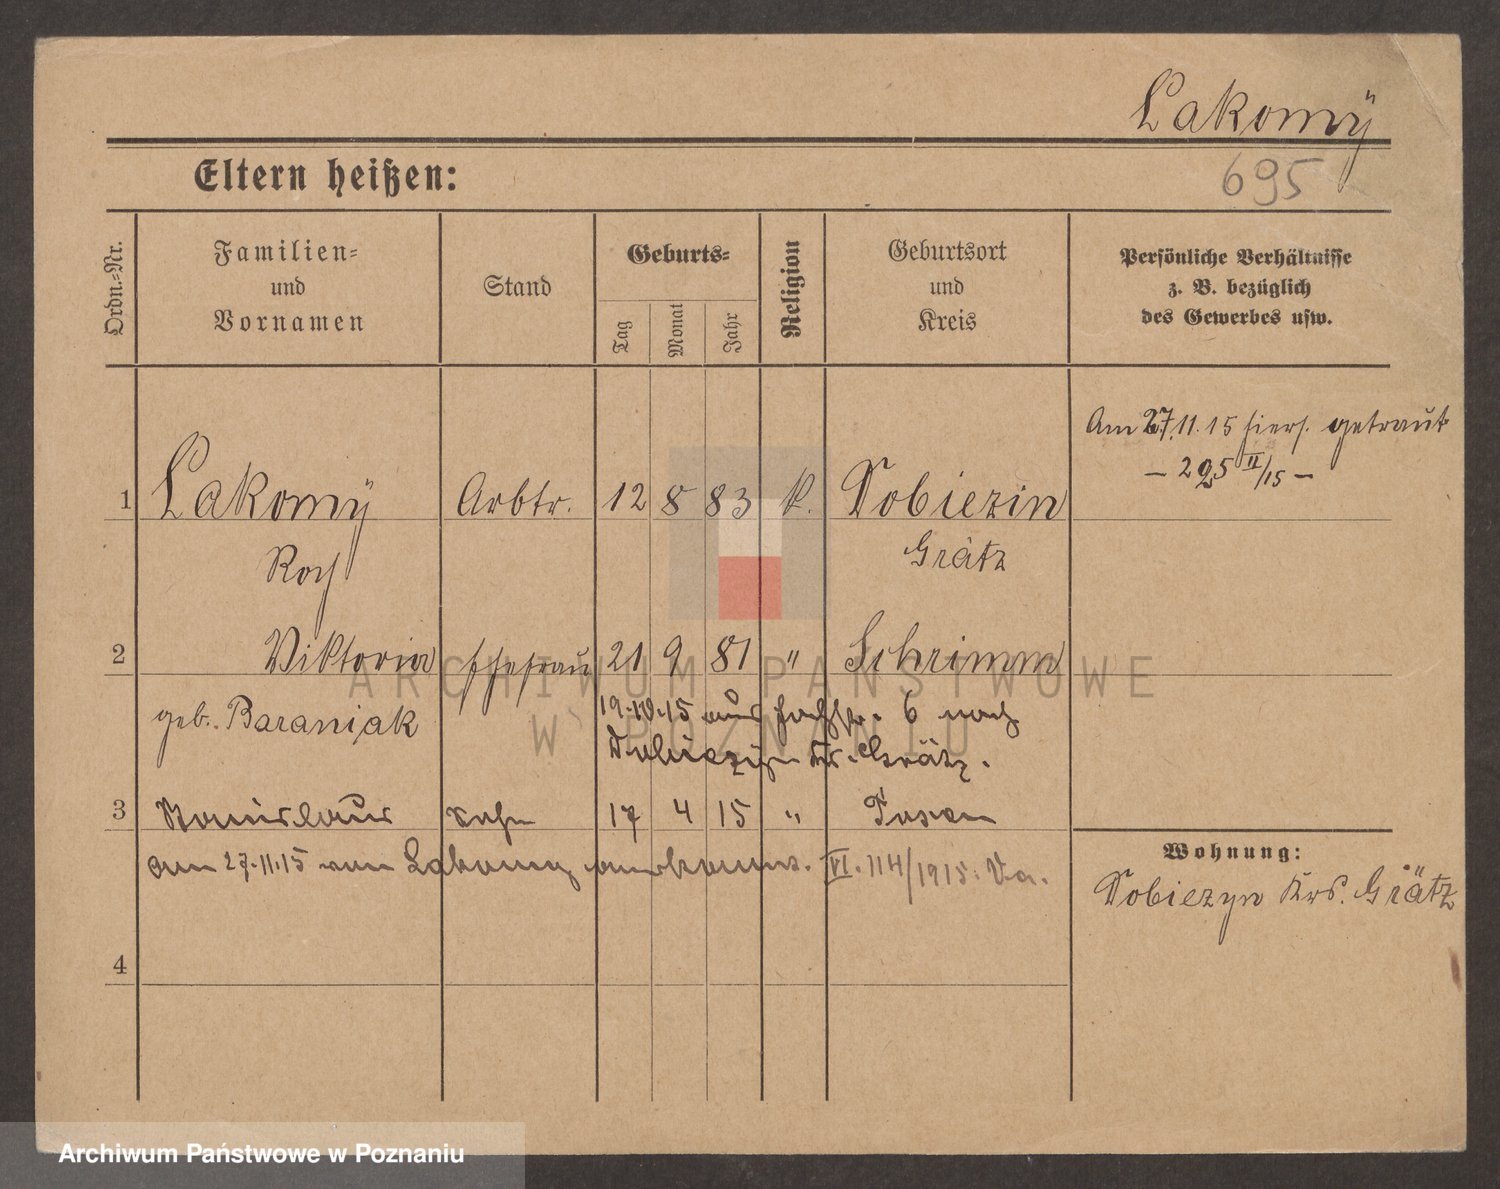 Lakomÿ
695
Eltern heißen:
Ordn.-Nr.
Familien-
und
Vornamen
Stand
Geburts-
Tag
Monat
Jahr
Religion
Geburtsort
und
Kreis
Persönliche Verhältnisse
z. B. bezüglich
des Gewerbes usw.
Am 27.11.15 hiers. getraut
— 295 II/15 —
1 Lakomÿ Arbtr. 12 8 83 k. Dobiezin
Roch Grätz
2 Viktoria Ehefrau 21 9 81 " Schrimm
geb. Baraniak
19.10.15 aus 6 nach
Dobiezyn Kr. Grätz.
3 Stanislaus Sohn 17 4 15 " Posen
am 27.11.15 von Lakomy anerkannt. VI. 114/1915. Va.
Wohnung:
Dobiezyn Krs. Grätz
4
ARCHIWUM PAŃSTWOWE
W POZNANIU
Archiwum Państwowe w Poznaniu